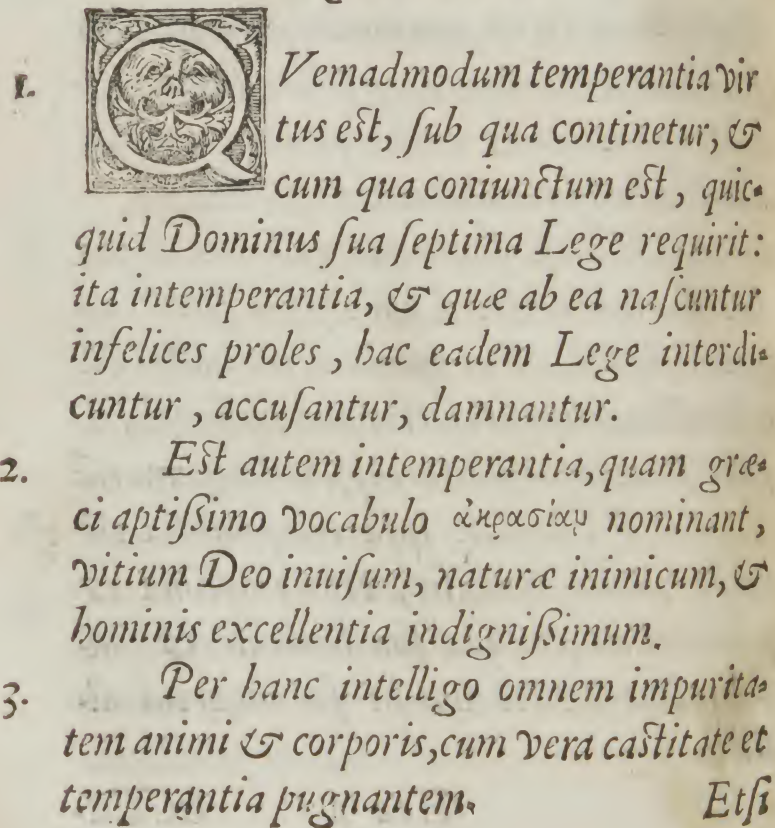 1. QVemadmodum temperantia vir
tus est, ſub qua continetur, &
cum qua coniunctum est, quic-
quid Dominus ſua ſeptima Lege requirit:
ita intemperantia, & quæ ab ea naſcuntur
infelices proles, hac eadem Lege interdi-
cuntur, accuſantur, damnantur.
2. Est autem intemperantia, quam græ-
ci aptiſsimo vocabulo ἀκρασίαν nominant,
vitium Deo inuiſum, naturæ inimicum, &
hominis excellentia indigniſsimum.
3. Per hanc intelligo omnem impurita-
tem animi & corporis, cum vera castitate et
temperantia pugnantem.
Etſi